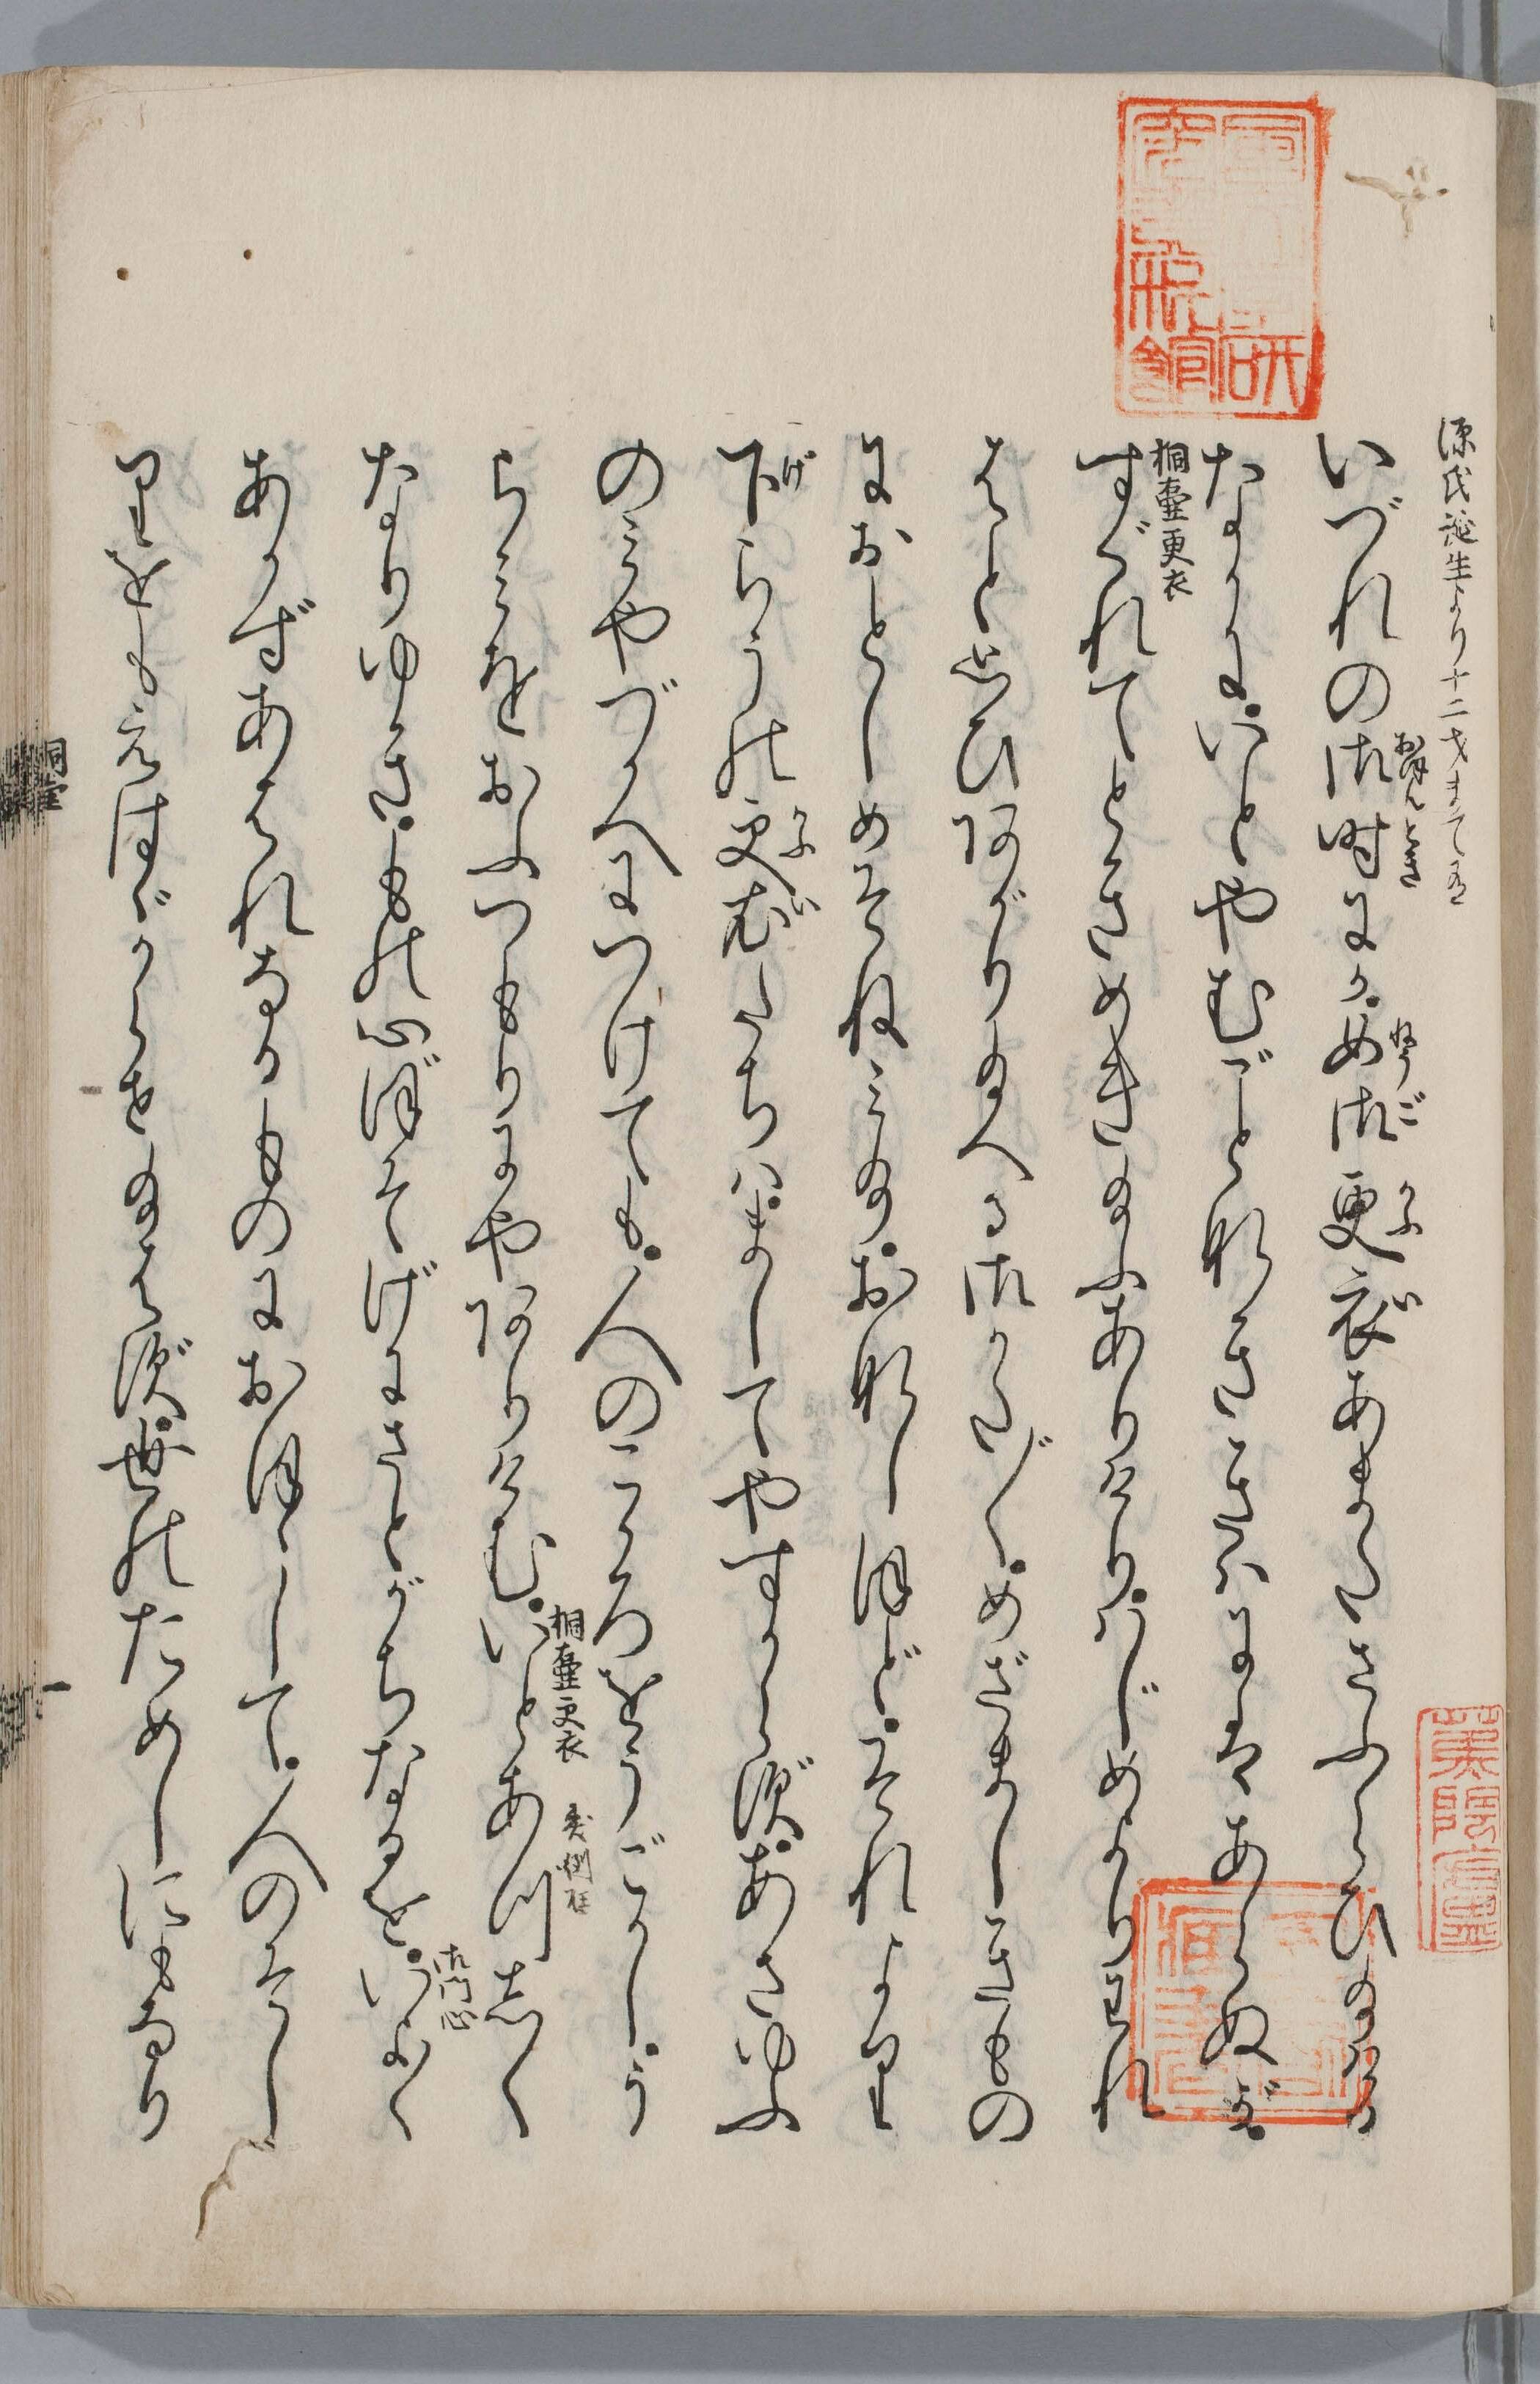 源氏誕生より十二才まて有
いづれの御時にか。女御更衣あまたさふらひ給ける
おほんとき
にようご
かうい
なかに。いとやむごとなききはにはあらぬが。
桐壺更衣
すぐれてときめき給ふありけり。はじめよりわれ
はと思ひあがり給へる御かた〴〵。めざましきもの
におとしめそねみ給。おなしほど。それより
下らうの更衣たちは。ましてやすからず。あさゆふ
げ
かうい
のみやづかへにつけても。人のこゝろをうごかし。う
らみをおふつもりにやありけむ。いとあつしく
桐壺更衣
異例
なりゆき。もの心ぼそげにさとがちなるを。いよ〳〵
御門心
あかずあはれなるものにおほゝして。人のそし
りをもえはゞからせ給はず。世のためしにもなり
桐壺
一